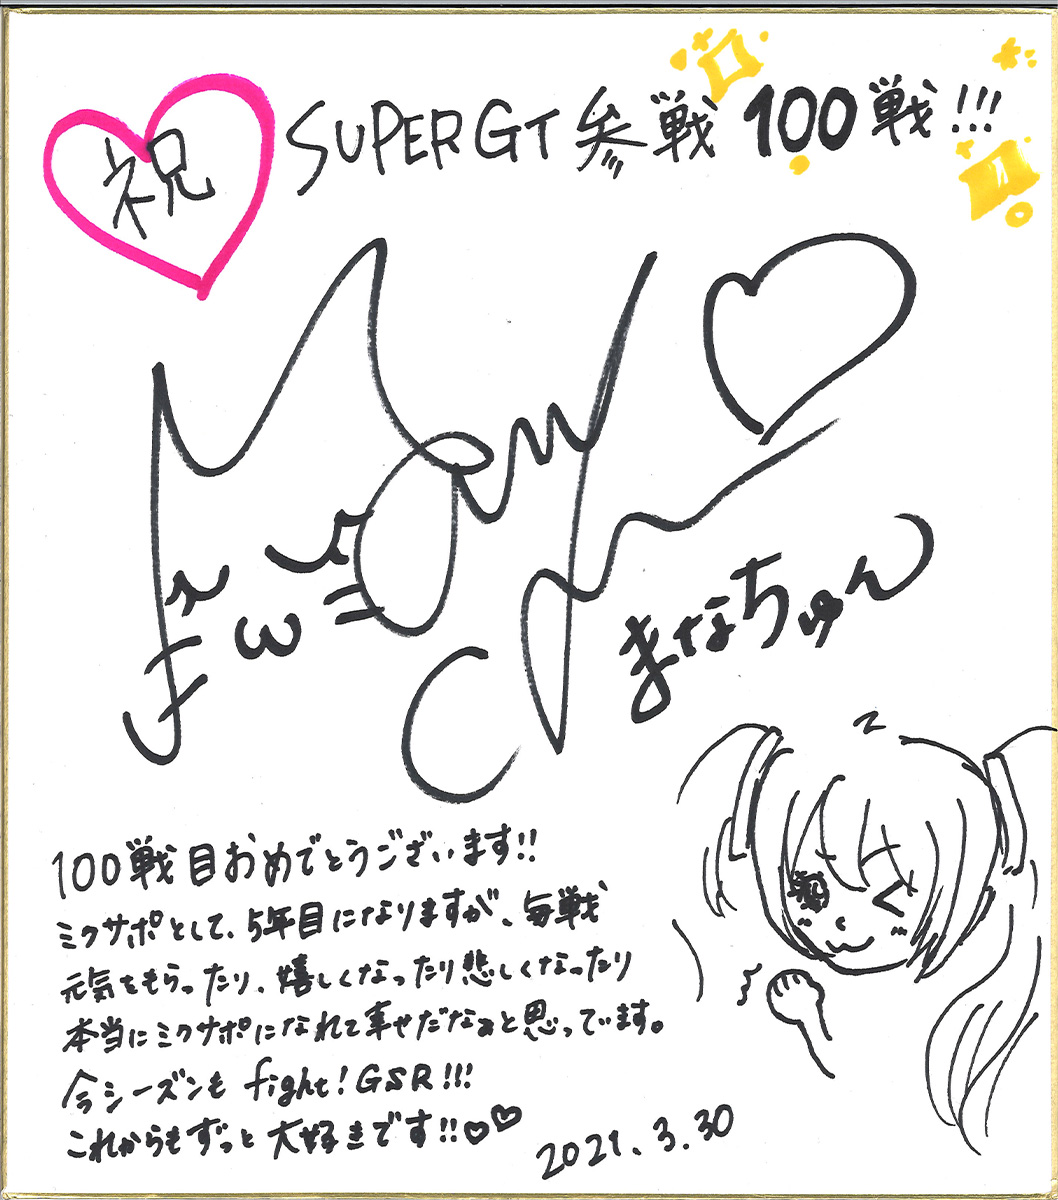 祝
SUPER GT 参戦 100戦!!!
まなちゅん
100戦目おめでとうございます!!
ミクサポとして、5年目になりますが、毎戦
元気をもらったり、嬉しくなったり悲しくなったり
本当にミクサポになれて幸せだなぁと思っています。
今シーズンも fight! GSR!!!
これからもずっと大好きです!!♡♡
2021.3.30